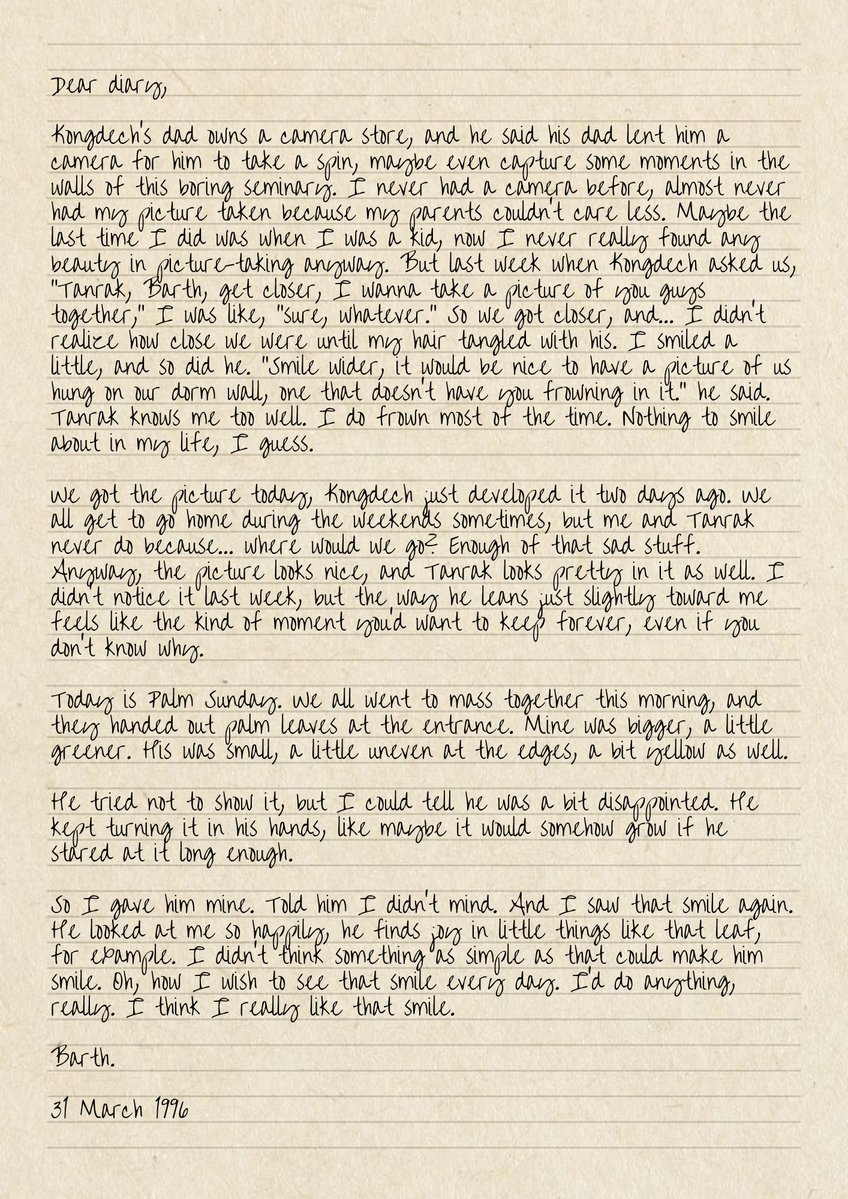 Dear diary,
Kongdech's dad owns a camera store, and he said his dad lent him a
camera for him to take a spin, maybe even capture some moments in the
walls of this boring seminary. I never had a camera before, almost never
had my picture taken because my parents couldn't care less. Maybe the
last time I did was when I was a kid, now I never really found any
beauty in picture-taking anyway. But last week when Kongdech asked us,
"Tanrak, Barth, get closer, I wanna take a picture of you guys
together," I was like, "sure, whatever." So we got closer, and... I didn't
realize how close we were until my hair tangled with his. I smiled a
little, and so did he. "Smile wider, it would be nice to have a picture of us
hung on our dorm wall, one that doesn't have you frowning in it." he said.
Tanrak knows me too well. I do frown most of the time. Nothing to smile
about in my life, I guess.
We got the picture today, Kongdech just developed it two days ago. We
all get to go home during the weekends sometimes, but me and Tanrak
never do because... where would we go? Enough of that sad stuff.
Anyway, the picture looks nice, and Tanrak looks pretty in it as well. I
didn't notice it last week, but the way he leans just slightly toward me
feels like the kind of moment you'd want to keep forever, even if you
don't know why.
Today is Palm Sunday. We all went to mass together this morning, and
they handed out palm leaves at the entrance. Mine was bigger, a little
greener. His was small, a little uneven at the edges, a bit yellow as well.
He tried not to show it, but I could tell he was a bit disappointed. He
kept turning it in his hands, like maybe it would somehow grow if he
stared at it long enough.
So I gave him mine. Told him I didn't mind. And I saw that smile again.
He looked at me so happily, he finds joy in little things like that leaf,
for example. I didn't think something as simple as that could make him
smile. Oh, how I wish to see that smile every day. I'd do anything,
really. I think I really like that smile.
Barth.
31 March 1996